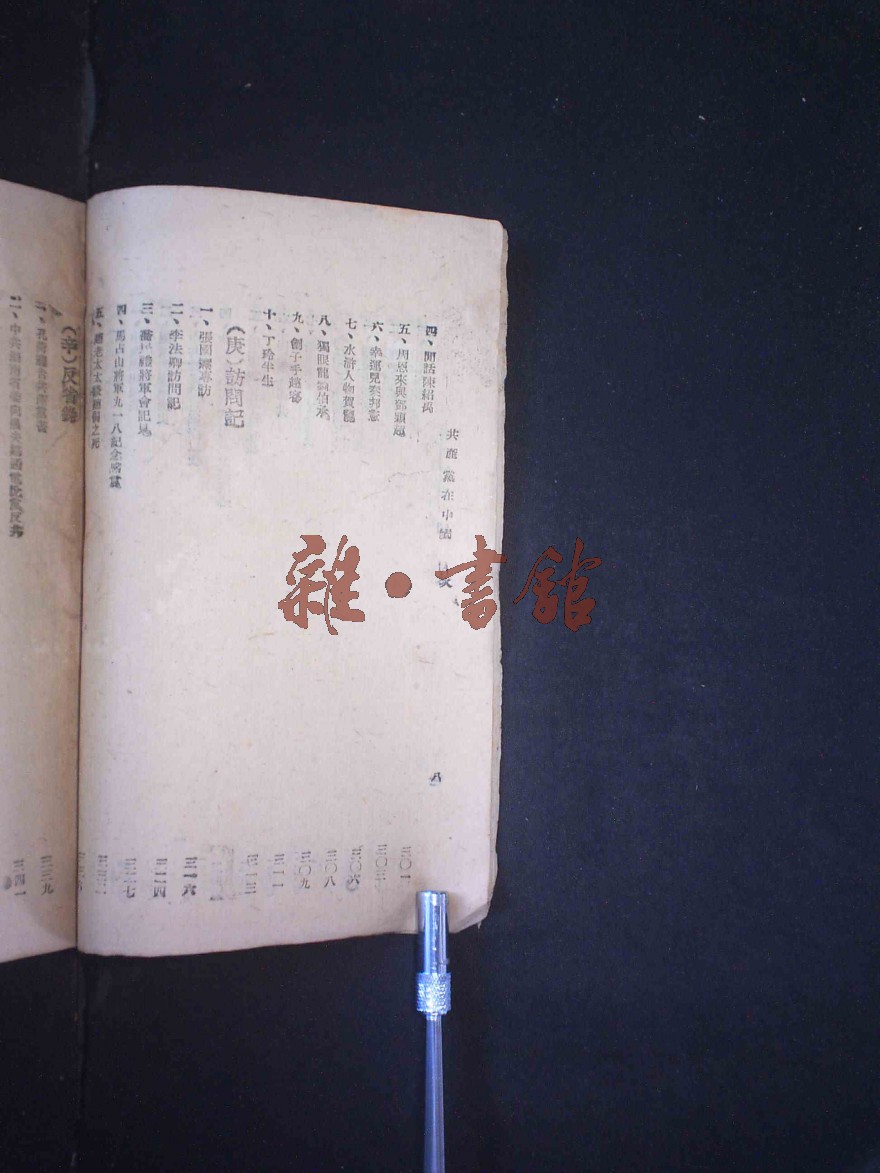 共產黨在中國 目次
八
四、閒話陳紹禹 三〇一
五、周恩來與鄧穎超 三〇三
六、幸運兒秦邦憲 三〇六
七、水滸人物賀龍 三〇八
八、獨眼龍劉伯承 三〇九
九、劊子手趙容 三一一
十、丁玲半生 三一三
(庚)訪問記
一、張國燾專訪 三一六
二、李法卿訪問記 三二四
三、將軍會記 三二七
四、馬占山將軍九一八紀念 三三二
五、老太太之死
(辛)反省錄
一、孔 三三九
二、中共 三四一
雜·書館